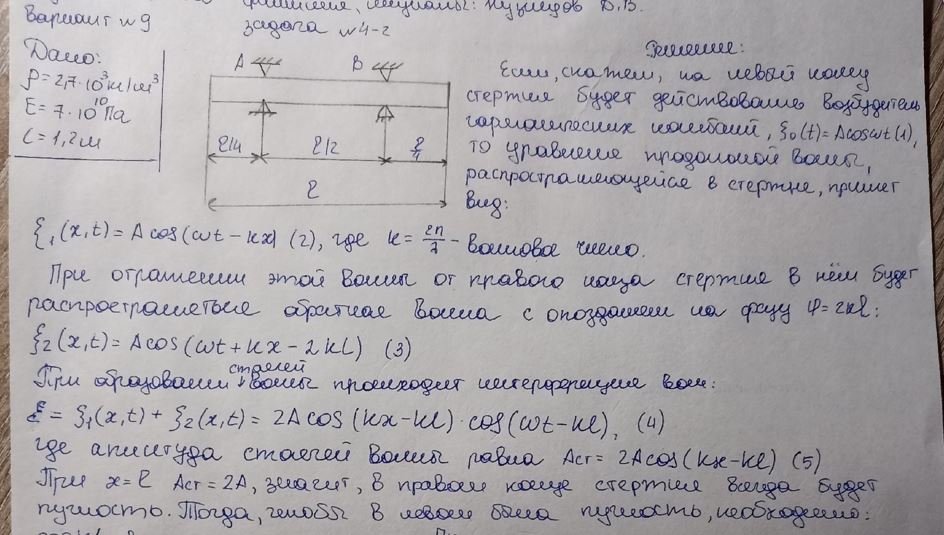 фамилия, инициалы: Кузнецов В.В.
Вариант №9
задача №4-2
Дано:
ρ = 2,7·10³ кг/м³
E = 7·10¹⁰ Па
l = 1,2 м
A
B
l/4
l/2
l/4
l
Решение:
Если, скажем, на левый конец
стержня будет действовать возбудитель
гармонических колебаний, ξ₀(t) = Acosωt (1),
то уравнение продольной волны,
распространяющейся в стержне, примет
вид:
ξ₁(x,t) = A cos(ωt - kx) (2), где k = 2π/λ - волновое число.
При отражении этой волны от правого конца стержня в нём будет
распространяться обратная волна с опозданием на фазу φ = 2kl:
ξ₂(x,t) = Acos(ωt + kx - 2kl) (3)
При образовании стоячей волны происходит интерференция волн:
ξ = ξ₁(x,t) + ξ₂(x,t) = 2A cos(kx - kl) · cos(ωt - kl), (4)
где амплитуда стоячей волны равна Aст = 2Acos(kx - kl) (5)
При x = l Aст = 2A, значит, в правом конце стержня всегда будет
пучность. Тогда, чтобы в левом была пучность, необходимо: